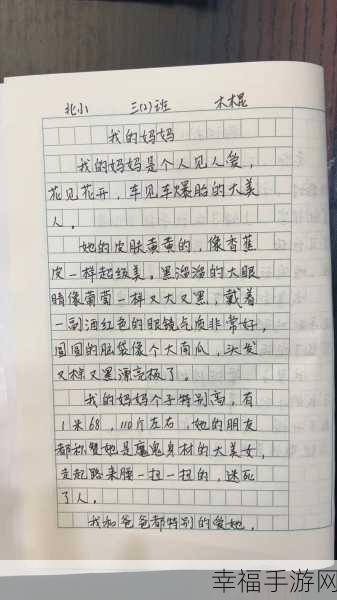 北小 三(2)班 木棍
我的妈妈
我的妈妈是个人见人爱,
花见花开,车见车爆胎的大美
人。
她的皮肤黄黄的,像香蕉
皮一样超级美。黑溜溜的大眼
睛像葡萄一样又大又黑,戴着
一副酒红色的眼镜气质非常好,
圆圆的脑袋像个大南瓜,头发
又棕又黑漂亮极了。
我的妈妈个子特别高,有
1米68,110斤左右,她的朋友
都称赞她是魔鬼身材的大美女,
走起路来腰一扭一扭的,迷死
了人。
我和爸爸都特别的爱她。
幸福手游网